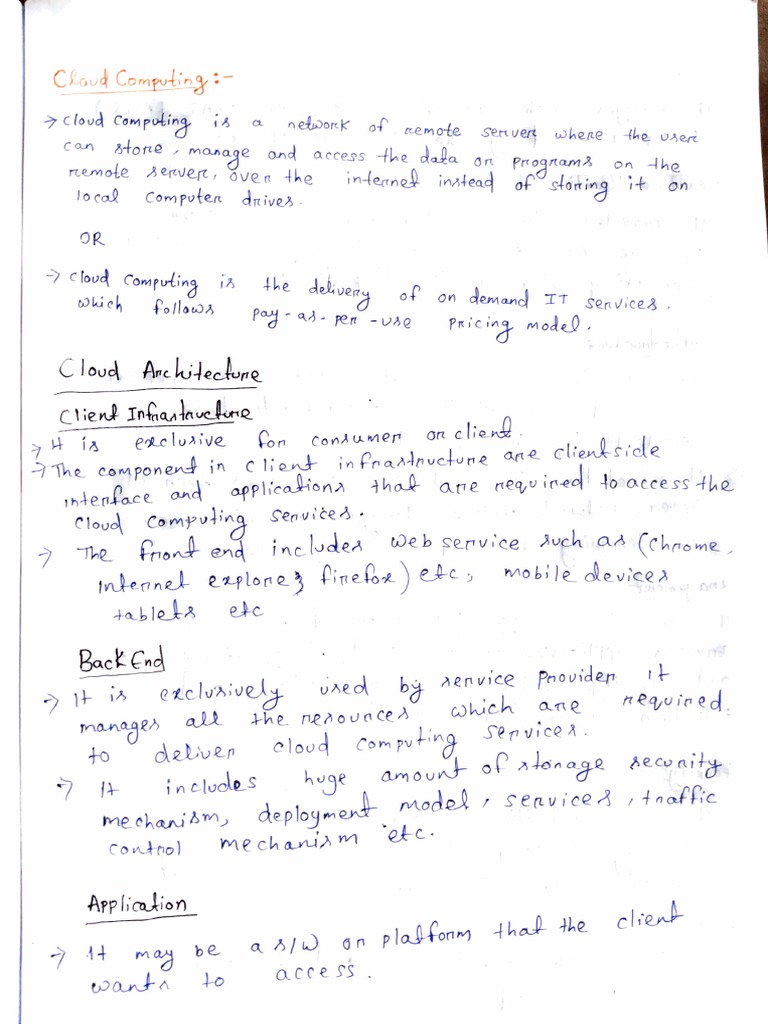 Cloud Computing :-
→ Cloud Computing is a network of remote server where the user
can store, manage and access the data or programs on the
remote server, over the internet instead of storing it on
local computer drives.
OR
→ Cloud Computing is the delivery of on demand IT services.
which follows pay-as-per-use pricing model.
Cloud Architecture
Client Infrastructure
→ It is exclusive for consumer or client.
→ The component in client infrastructure are clientside
interface and applications that are required to access the
cloud computing services.
→ The front end includes web service such as (Chrome,
Internet explorer, firefox) etc, mobile devices
tablets etc
Back End
→ It is exclusively used by service provider it
manages all the resources which are required
to deliver cloud computing services.
→ It includes huge amount of storage security
mechanism, deployment model, services, traffic
control mechanism etc.
Application
→ It may be a s/w or platform that the client
wants to access.